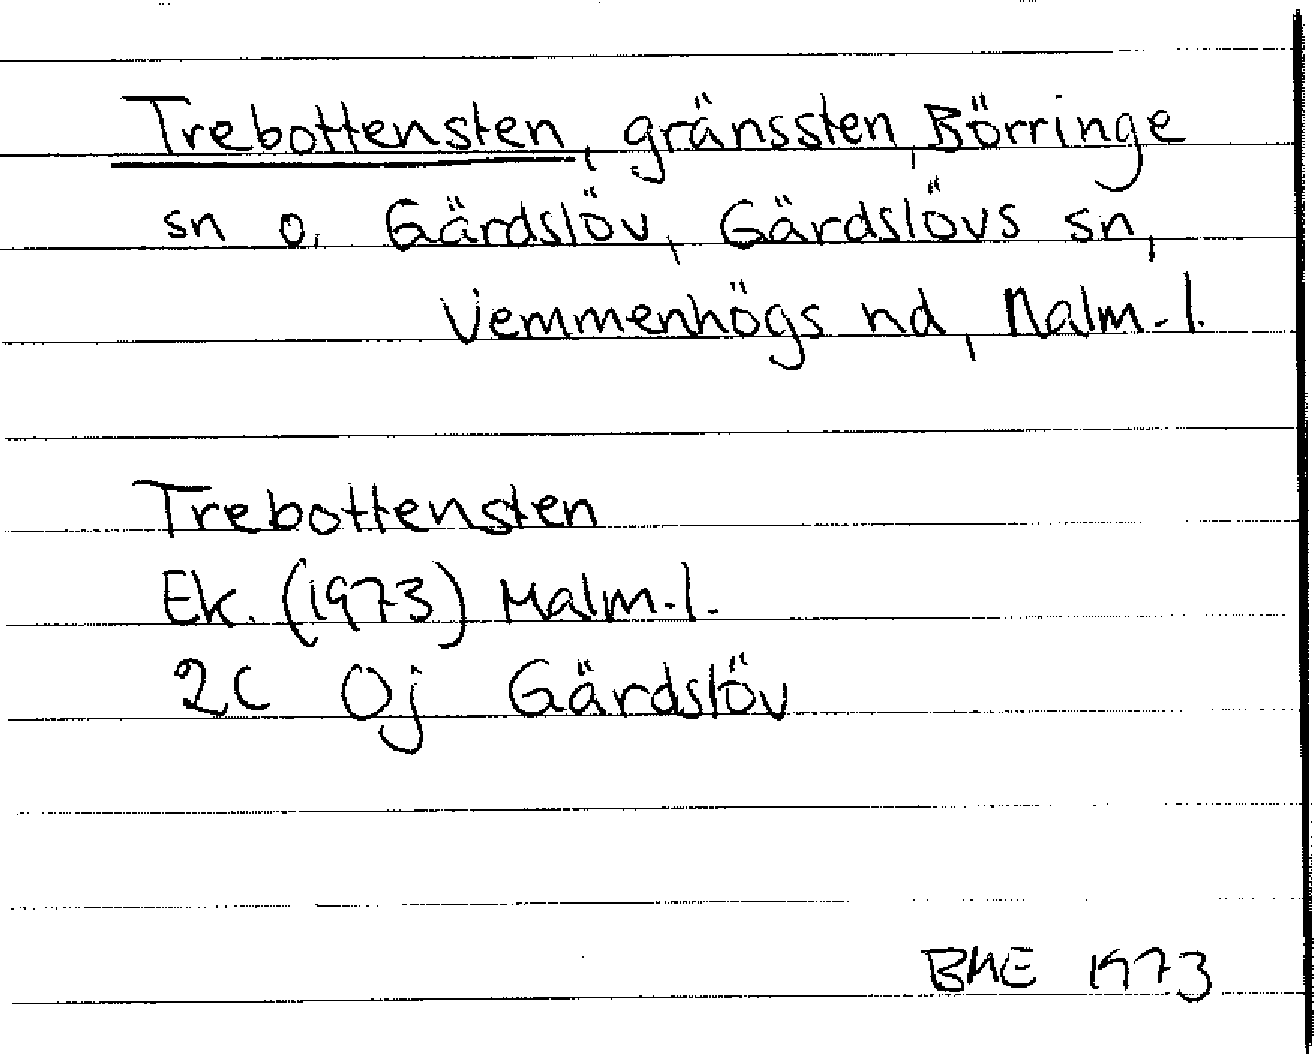 Trebottensten, gränssten, Börringe
sn o. Gärdslöv, Gärdslövs sn,
Vemmenhögs hd, Malm-l.
Trebottensten
Ek. (1973) Malm-l.
2C 0j Gärdslöv
1973